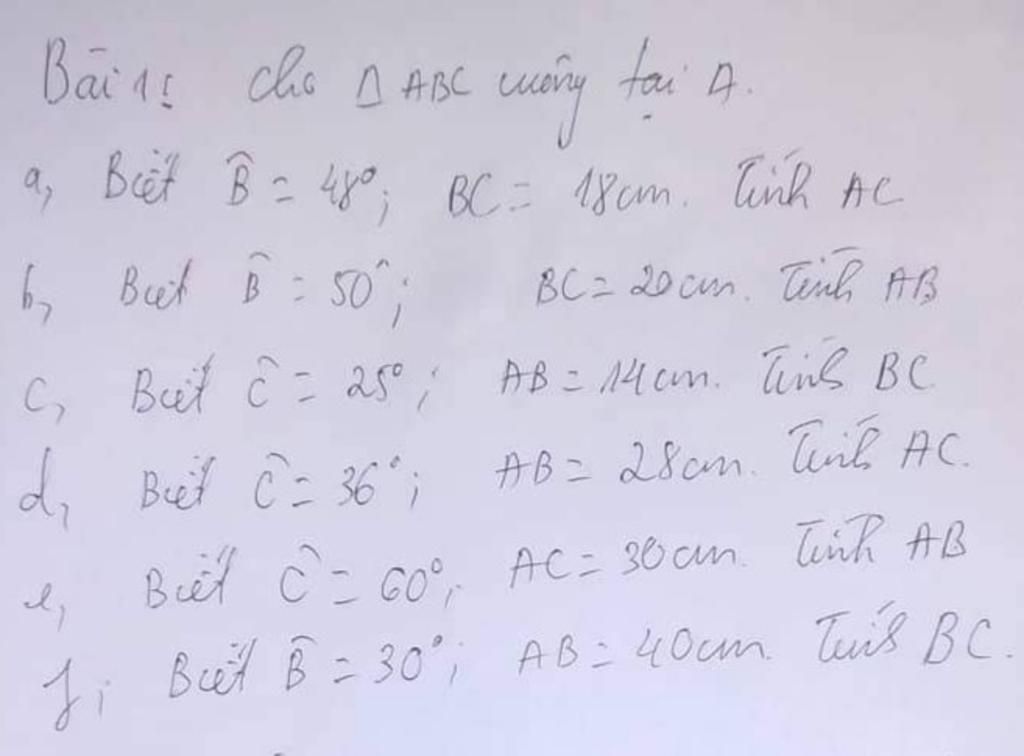 Bài 1: cho Δ ABC vuông tại A.
a, Biết B̂ = 48°; BC = 18cm. Tính AC
b, Biết B̂ = 50°; BC = 20cm. Tính AB
c, Biết Ĉ = 25°; AB = 14cm. Tính BC
d, Biết Ĉ = 36°; AB = 28cm. Tính AC.
e, Biết Ĉ = 60°; AC = 30cm. Tính AB
f, Biết B̂ = 30°; AB = 40cm. Tính BC.